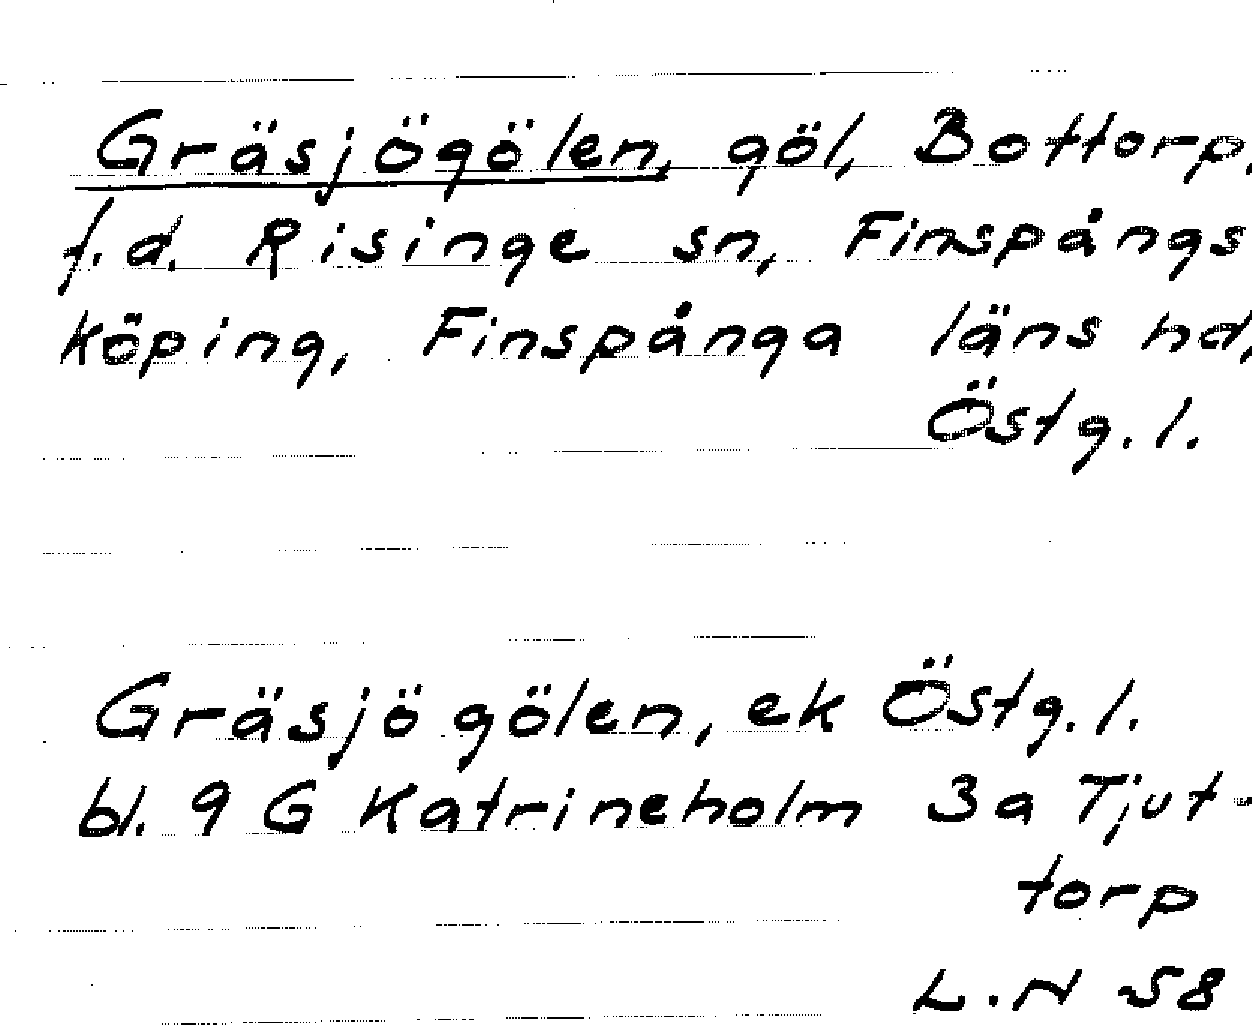 Gräsjögölen, göl, Bottorp,
f.d. Risinge sn, Finspångs
köping, Finspånga läns hd,
Östg.l.
Gräsjögölen, ek Östg.l.
bl. 9 G Katrineholm 3a Tjut-
torp
L.N 58